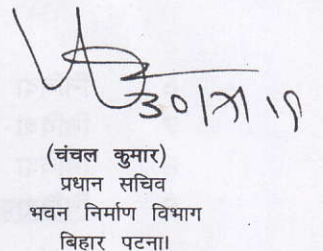 (चंचल कुमार)
प्रधान सचिव
भवन निर्माण विभाग
बिहार पटना।